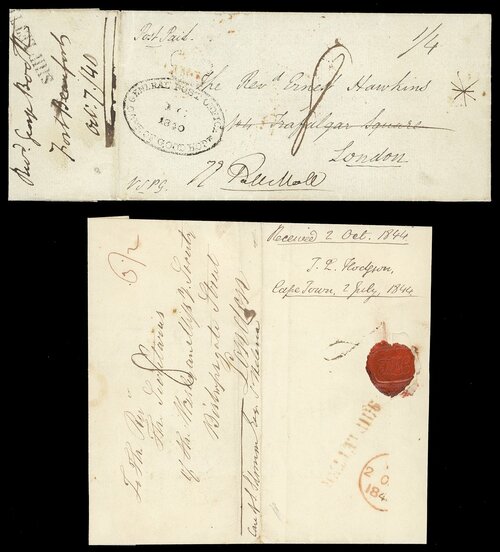 Post Paid.
1/4
The Revd Ernest Hawkins
1/4 Trafalgar Square
London
79 Pall Mall
8
GENERAL POST OFFICE
1840
CAPE OF GOOD HOPE
SHIP LET
Revd Geo. Booth
Fort Beaufort
Oct. 7/40
Received 2 Oct. 1844
T. L. Hodgson,
Cape Town, 2 July, 1844
To the Rev
The Secretaries
of the Wesleyan Missy Society
Bishopsgate Street
London
8
2 O
184